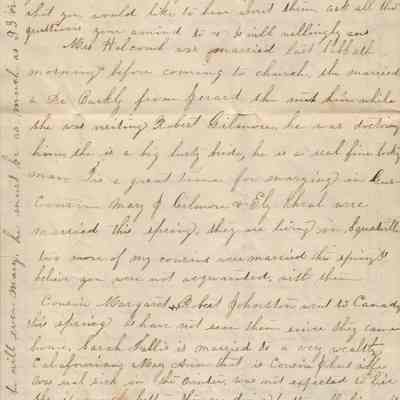 what you would like to hear about them ask all the
questions you a mind to & I will willingly ans
Mrs Holcomb was married last Sabbath
morning before coming to church, she married
a Dr from Gerard she met him while
she was visiting Robert Gilmore, he was doctoring
him she is a big lusty bride, he is a real fine looking
man Tis a great time for marrying in
Cousin Mary J Gilmore & Ely were
married this spring, they are living in
two more of my cousins were married this spring I
believe you were not acquainted with them
Cousin Margaret & Robert Johnston went to Canada
this spring I have not seen them since they came
home, Sarah is married to a very wealthy
Californian Mary Ann that is Cousin
was real sick in the winter, was not expected to live
he will soon marry he used to as much as